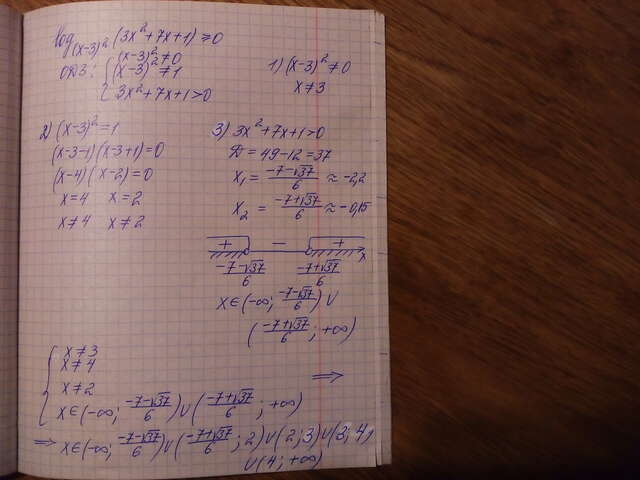 log_{(x-3)^2} (3x^2+7x+1) ≥ 0
ОДЗ: { (x-3)^2 ≠ 0
(x-3)^2 ≠ 1
3x^2+7x+1>0
1) (x-3)^2 ≠ 0
x ≠ 3
2) (x-3)^2 = 1
(x-3-1)(x-3+1)=0
(x-4)(x-2)=0
x=4 x=2
x≠4 x≠2
3) 3x^2+7x+1>0
Д = 49-12 = 37
x_1 = (-7-√37)/6 ≈ -2,2
x_2 = (-7+√37)/6 ≈ -0,15
+ − + x
(-7-√37)/6 (-7+√37)/6
x∈(-∞; (-7-√37)/6) ∪
((-7+√37)/6; +∞)
{ x≠3
x≠4
x≠2
x∈(-∞; (-7-√37)/6) ∪ ((-7+√37)/6; +∞) ⇒
⇒ x∈(-∞; (-7-√37)/6) ∪ ((-7+√37)/6; 2) ∪ (2; 3) ∪ (3; 4)
∪ (4; +∞)